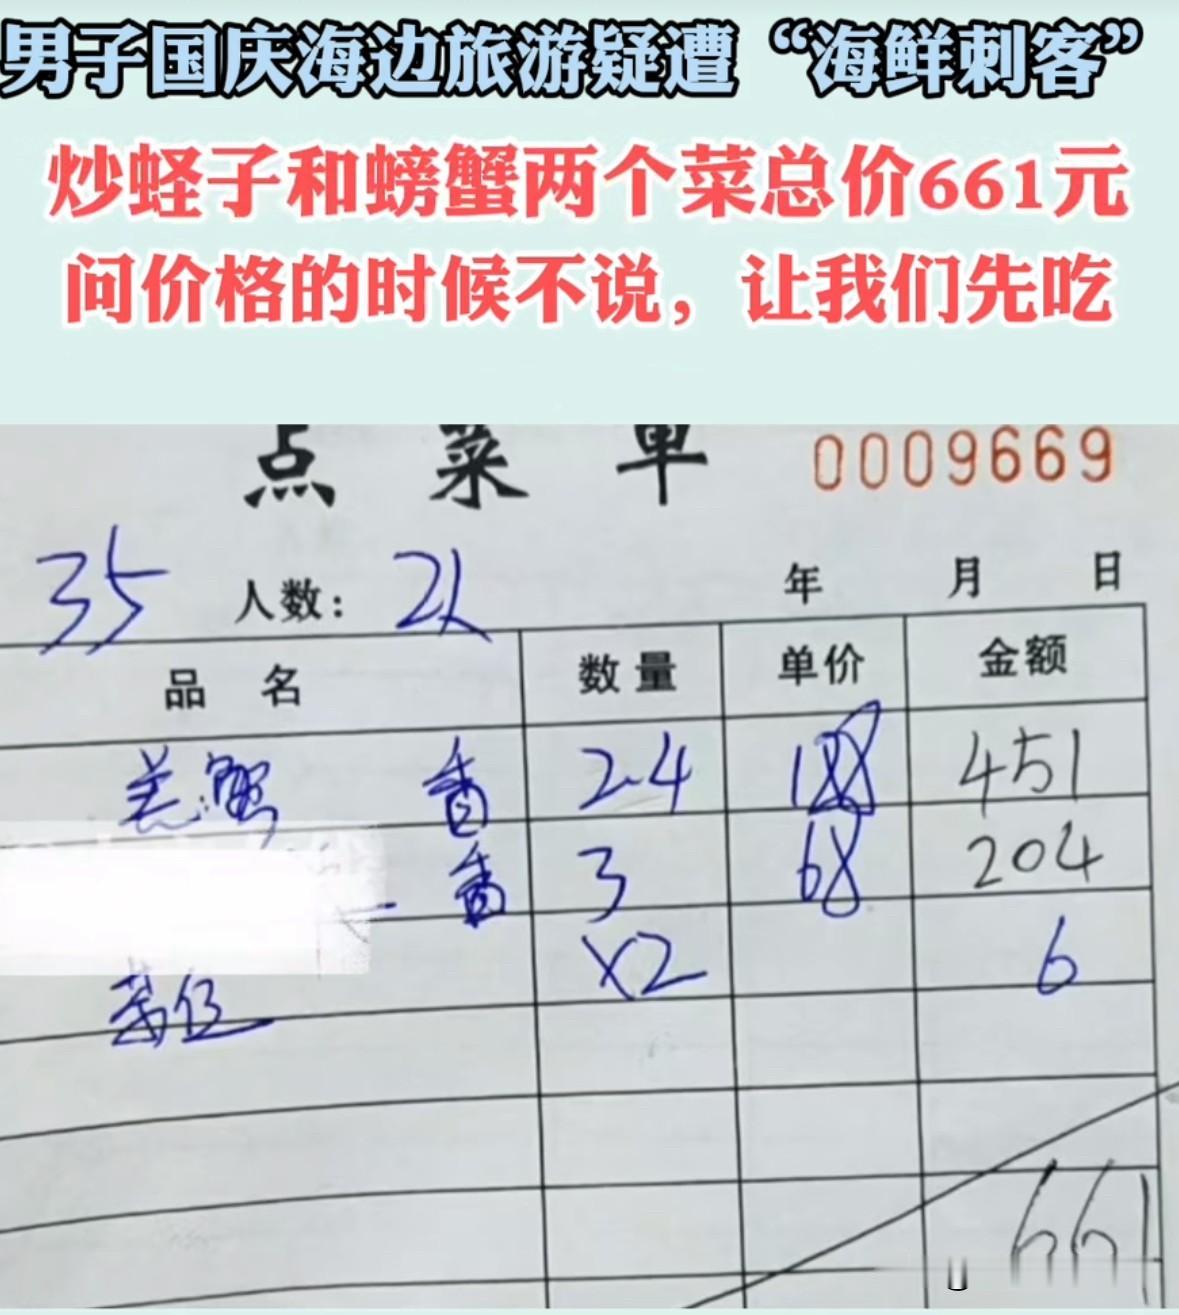 男子国庆海边旅游疑遭“海鲜刺客”
炒蛏子和螃蟹两个菜总价661元
问价格的时候不说，让我们先吃
点菜单 0009669
35 人数： 2人 年 月 日
品名 数量 单价 金额
羔蟹 香 2.4 188 451
香 3 68 204
茶位 x2 6
661